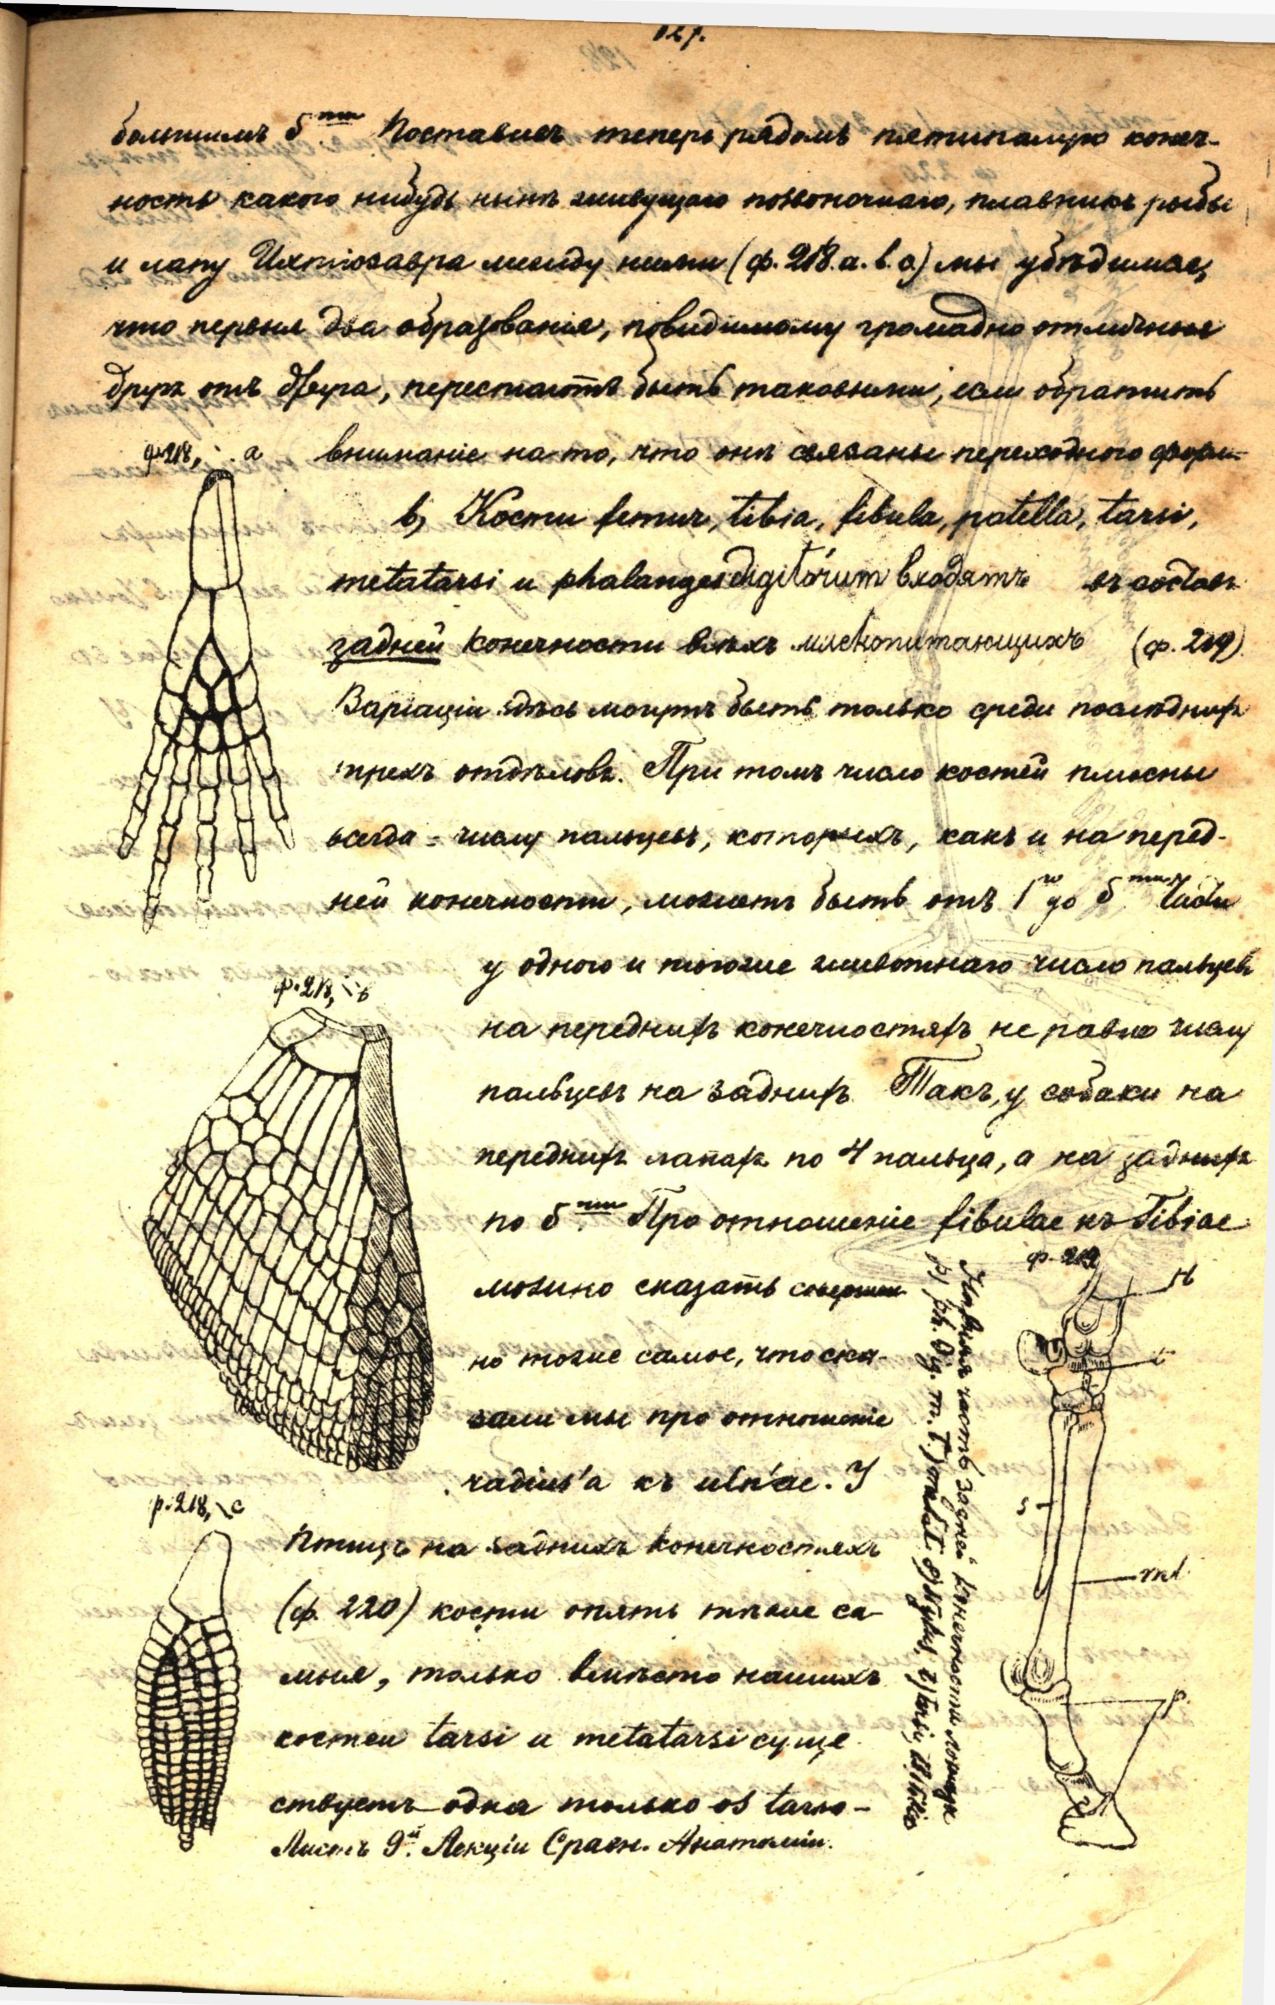 127.
большимъ 5ти Поставивъ теперь рядомъ пятипалую конеч-
ность какого нибудь нынѣ живущаго позвоночнаго, плавникъ рыбы
и лапу Ихтіозавра между ними (ф. 218. a. b. c) мы убѣдимся,
что первыя два образованія, повидимому громадно отличныя
другъ отъ друга, перестаютъ быть таковыми, если обратить
ф. 218, a
вниманіе на то, что онѣ связаны переходного форм-
b, Кости femur, tibia, fibula, patella, tarsi,
metatarsi и phalanges digitórum входятъ въ составъ
задней конечности всѣхъ млекопитающихъ (ф. 219)
Варіаціи здѣсь могутъ быть только среди послѣднихъ
трехъ отдѣловъ. При томъ число костей плюсны
всегда = числу пальцевъ, которыхъ, какъ и на перед-
ней конечности, можетъ быть отъ 1го до 5ти
у одного и тогоже животнаго число пальцевъ
ф. 218, b
на переднихъ конечностяхъ не равно числу
пальцевъ на заднихъ Такъ, у собаки на
переднихъ лапахъ по 4 пальца, а на заднихъ
по 5ти Про отношеніе fibulae къ Tibiae
можно сказать совершен
но тоже самое, что ска-
зали мы про отношеніе
radius'a къ uln'ae. У
ф. 218, c
птицъ на заднихъ конечностяхъ
(ф. 220) кости опять тѣже са-
мыя, только вмѣсто нашихъ
костей tarsi и metatarsi суще
ствуетъ одна только os tarso-
Листъ 9й. Лекціи Сравн. Анатоміи.
ф. 219
t
s
mt
p.
часть задней конечности лошади